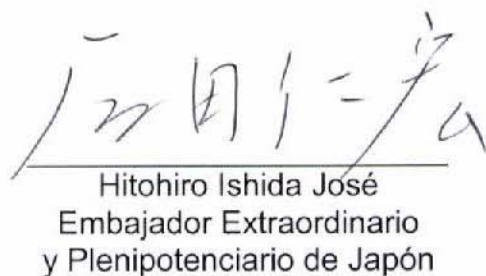 石田仁宏
Hitohiro Ishida José
Embajador Extraordinario
y Plenipotenciario de Japón